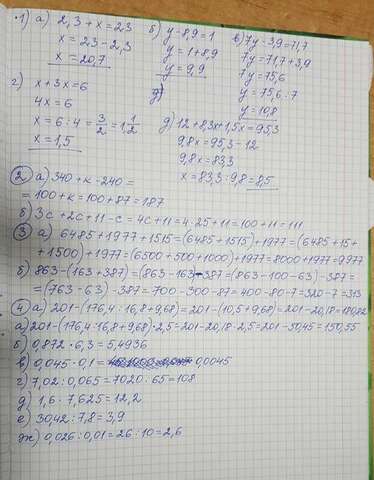 1) а) 2,3 + x = 23
x = 23 - 2,3
x = 20,7
б) y - 8,9 = 1
y = 1 + 8,9
y = 9,9
в) 7y - 3,9 = 71,7
7y = 71,7 + 3,9
7y = 75,6
y = 75,6 : 7
y = 10,8
г) x + 3x = 6
4x = 6
x = 6 : 4 = 3/2 = 1 1/2
x = 1,5
д) 12 + 8,3x + 1,5x = 95,3
9,8x = 95,3 - 12
9,8x = 83,3
x = 83,3 : 9,8 = 8,5
2) а) 340 + к - 240 =
= 100 + к = 100 + 87 = 187
б) 3с + 2с + 11 - с = 4с + 11 = 4 · 25 + 11 = 100 + 11 = 111
3) а) 6485 + 1977 + 1515 = (6485 + 1515) + 1977 = (6485 + 15 +
+ 1500) + 1977 = (6500 + 500 + 1000) + 1977 = 8000 + 1977 = 9977
б) 863 - (163 + 387) = (863 - 163) - 387 = (863 - 100 - 63) - 387 =
= (763 - 63) - 387 = 700 - 300 - 87 = 400 - 80 - 7 = 320 - 7 = 313
4) а) 201 - (176,4 : 16,8 + 9,68) = 201 - (10,5 + 9,68) = 201 - 20,18 = 180,82
а) 201 - (176,4 : 16,8 + 9,68) · 2,5 = 201 - 20,18 · 2,5 = 201 - 50,45 = 150,55
б) 0,872 · 6,3 = 5,4936
в) 0,045 · 0,1 = 0,0045
г) 7,02 : 0,065 = 7020 : 65 = 108
д) 1,6 · 7,625 = 12,2
е) 30,42 : 7,8 = 3,9
ж) 0,026 : 0,01 = 26 : 10 = 2,6